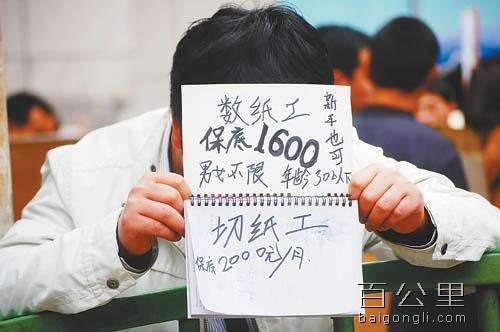 数纸工
新手也可
保底1600
男女不限 年龄30以下
切纸工
保底2000元/月.
百公里
baigongli.com